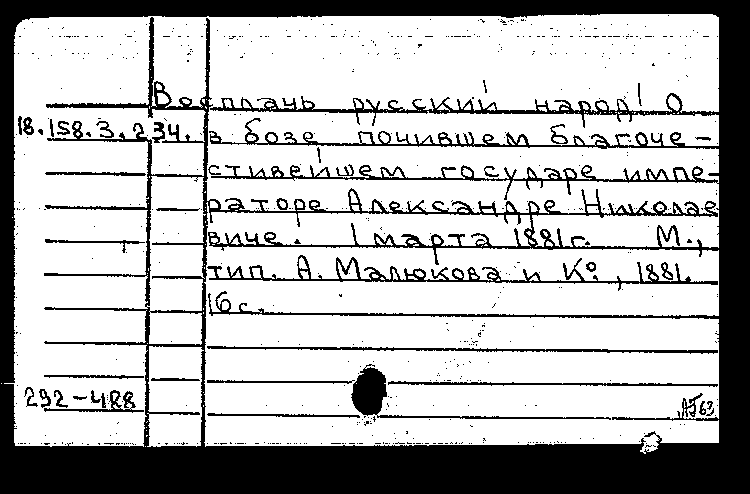 Восплачь русский народ! О
18.158.3.234. в бозе почившем благоче-
стивейшем государе импе-
раторе Александре Николае
виче. 1 марта 1881 г. М.,
тип. А. Малюкова и К°, 1881.
16 с.
292-428